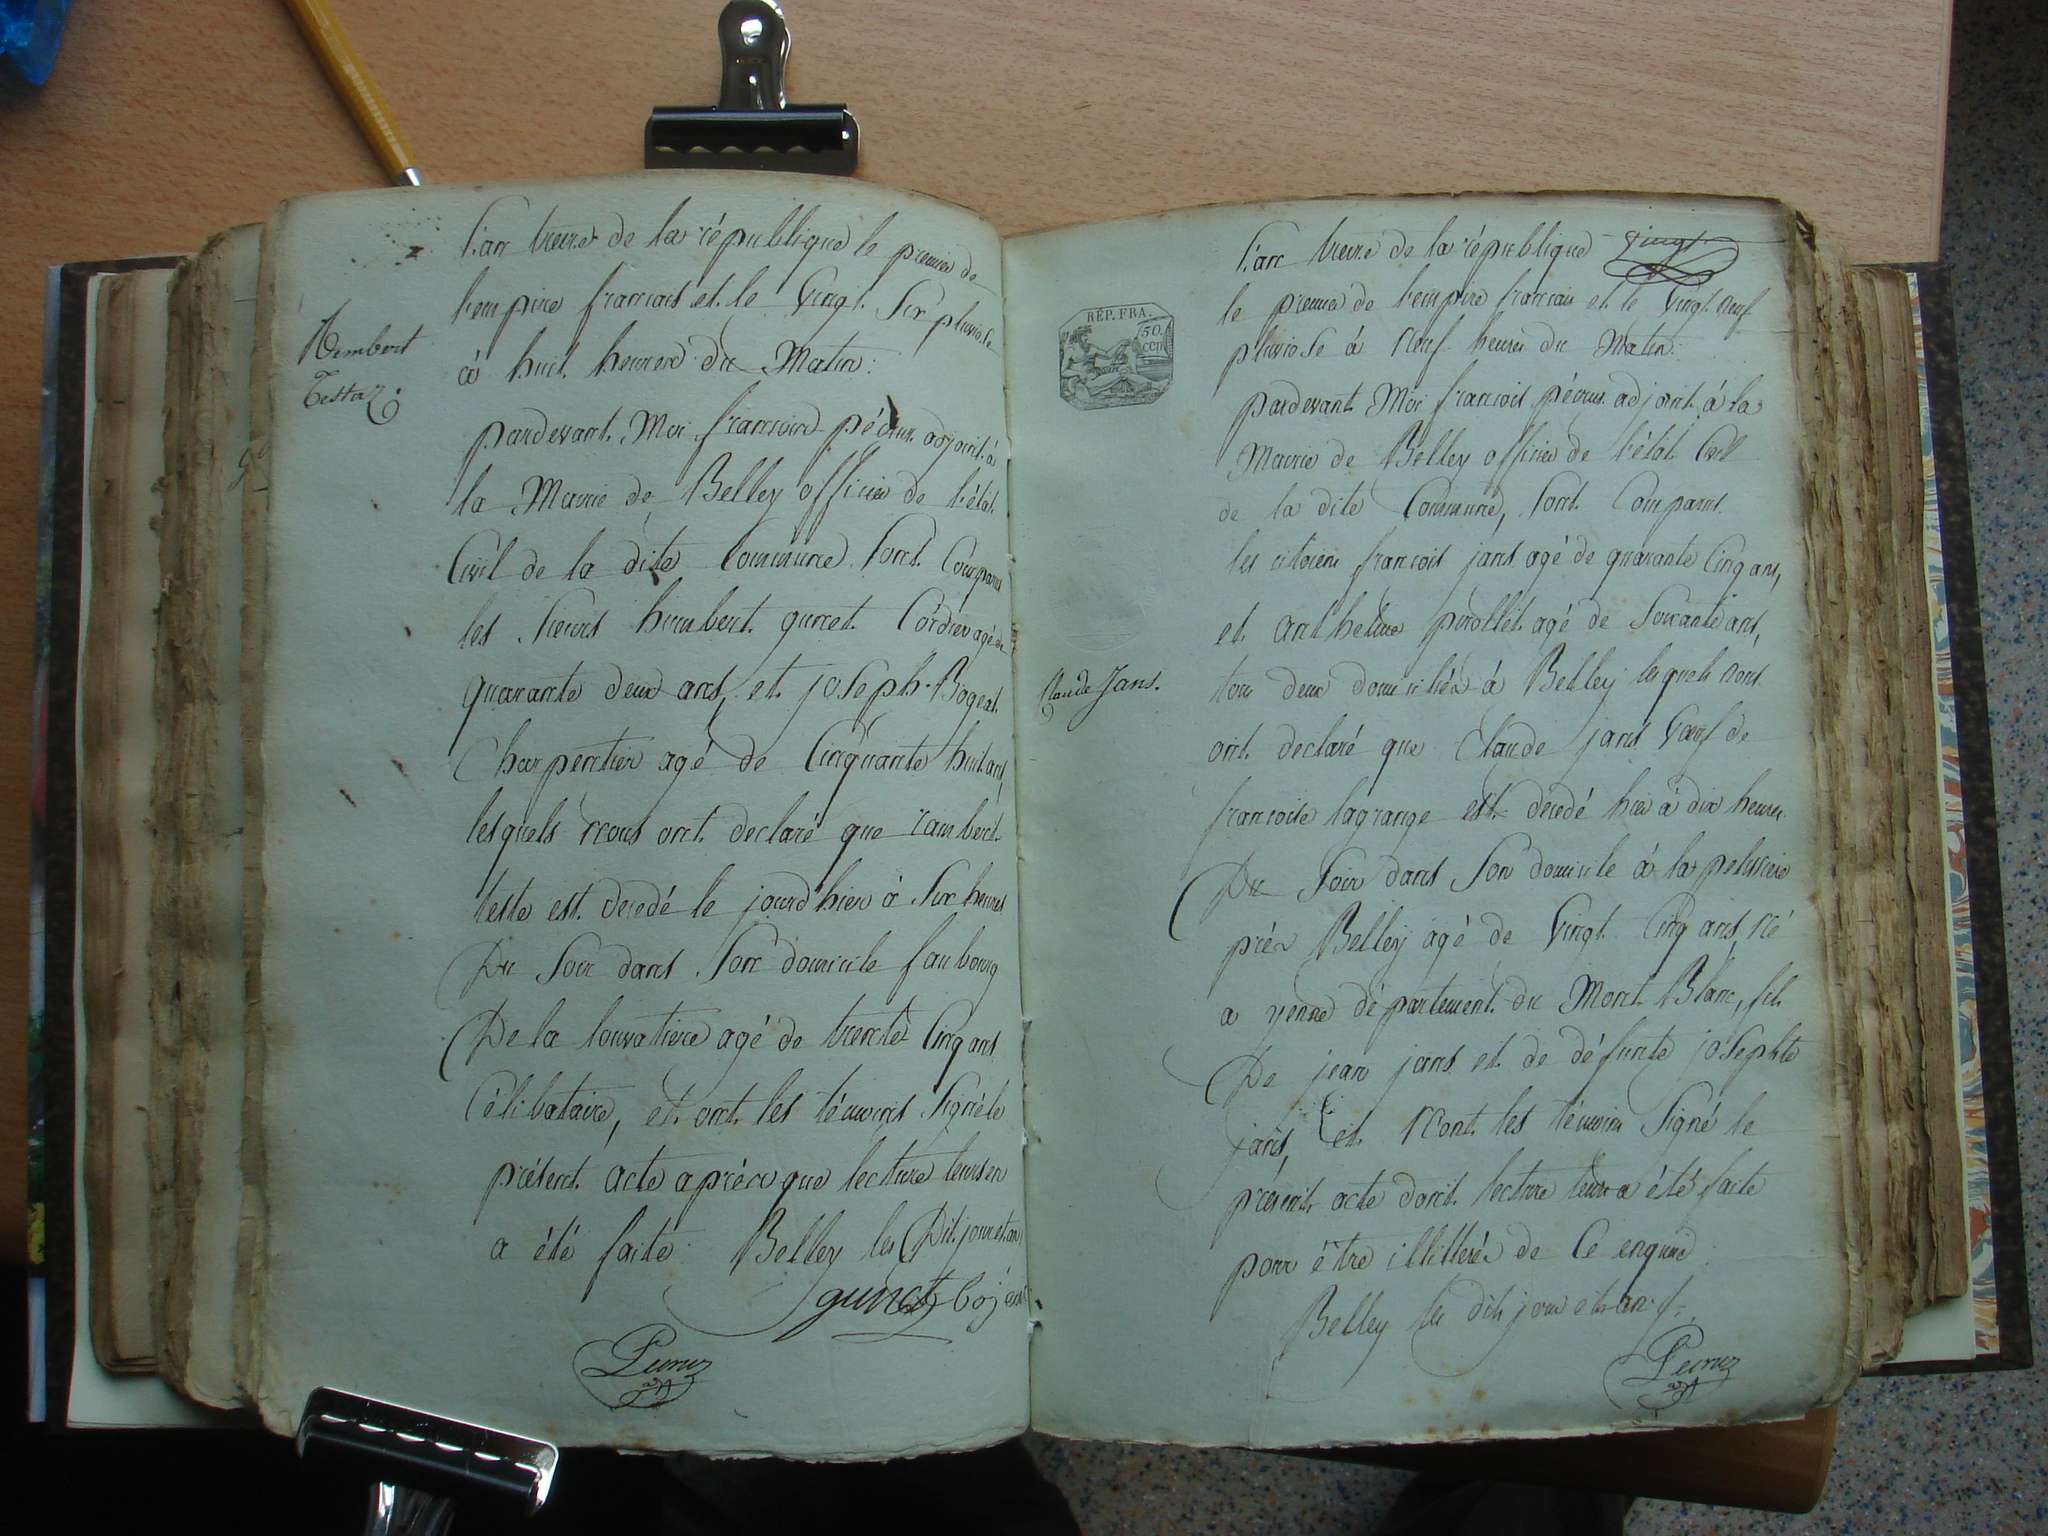 Rambert
Testaz.
l'an treize de la république le premier de
l'empire francais et le vingt six pluviose
à huit heures du Matin:
pardevant Moi francois pécrux adjoint à
la Mairie de Belley officier de l'état
Civil de la dite Commune Sont Comparus
les Sieurs humbert guinet Cordier agé de
quarante deux ans, et joseph Bogeat
Charpentier agé de Cinquante huit ans,
lesquels nous ont declaré que rambert
teste est decedé le jourd'hier à Six heures
Du Soir dans Son domicile faubourg
De la louvatiere agé de trente Cinq ans
Célibataire, et ont les témoins Signé le
présent acte aprés que lecture leurs en
a été faite. Belley les Dit jour et an
guinet
l'an treize de la république vingt
REP. FRA.
50.
cen
le premier de l'empire francais et le Vingt Neuf
pluviose à Neuf heures du Matin:
pardevant Moi francois pécrux adjoint à la
Mairie de Belley officier de l'état Civil
de la dite Commune, Sont Comparus
les citoiens francois jans agé de quarante Cinq ans,
et anthelme pirollet agé de Soixante ans,
Claude Jans.
tous deux domiciliés à Belley lesquels nous
ont declaré que Claude jans Vœuf de
francoise lagrange est decedé hier à dix heures
Du Soir dans Son domicile à la
prés Belley agé de Vingt Cinq ans, Né
a yenne département du Mont Blanc, fils
De jean jans et de défunte josephte
jans, et N'ont les témoins Signé le
présent acte dont lecture leurs a été faite
pour être illitterés de Ce enquis
Belley les dits jour et an